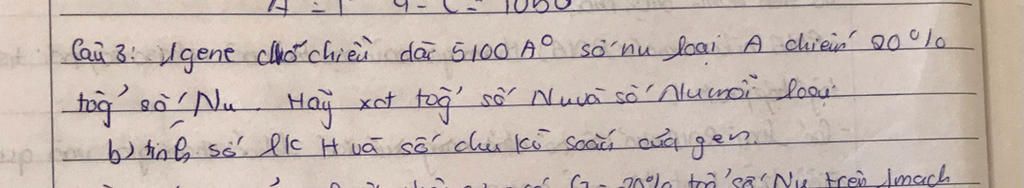 A = T    G = C = 1050
Câu 3: 1 gene có chiều dài 5100 A° số nu loại A chiếm 20%
tổg số Nu. Hãy xđ tổg số Nu và số Nu mỗi loại
b) tính số lk H và số chu kì xoắn của gen.
G = 20% tổg số Nu trên 1 mạch